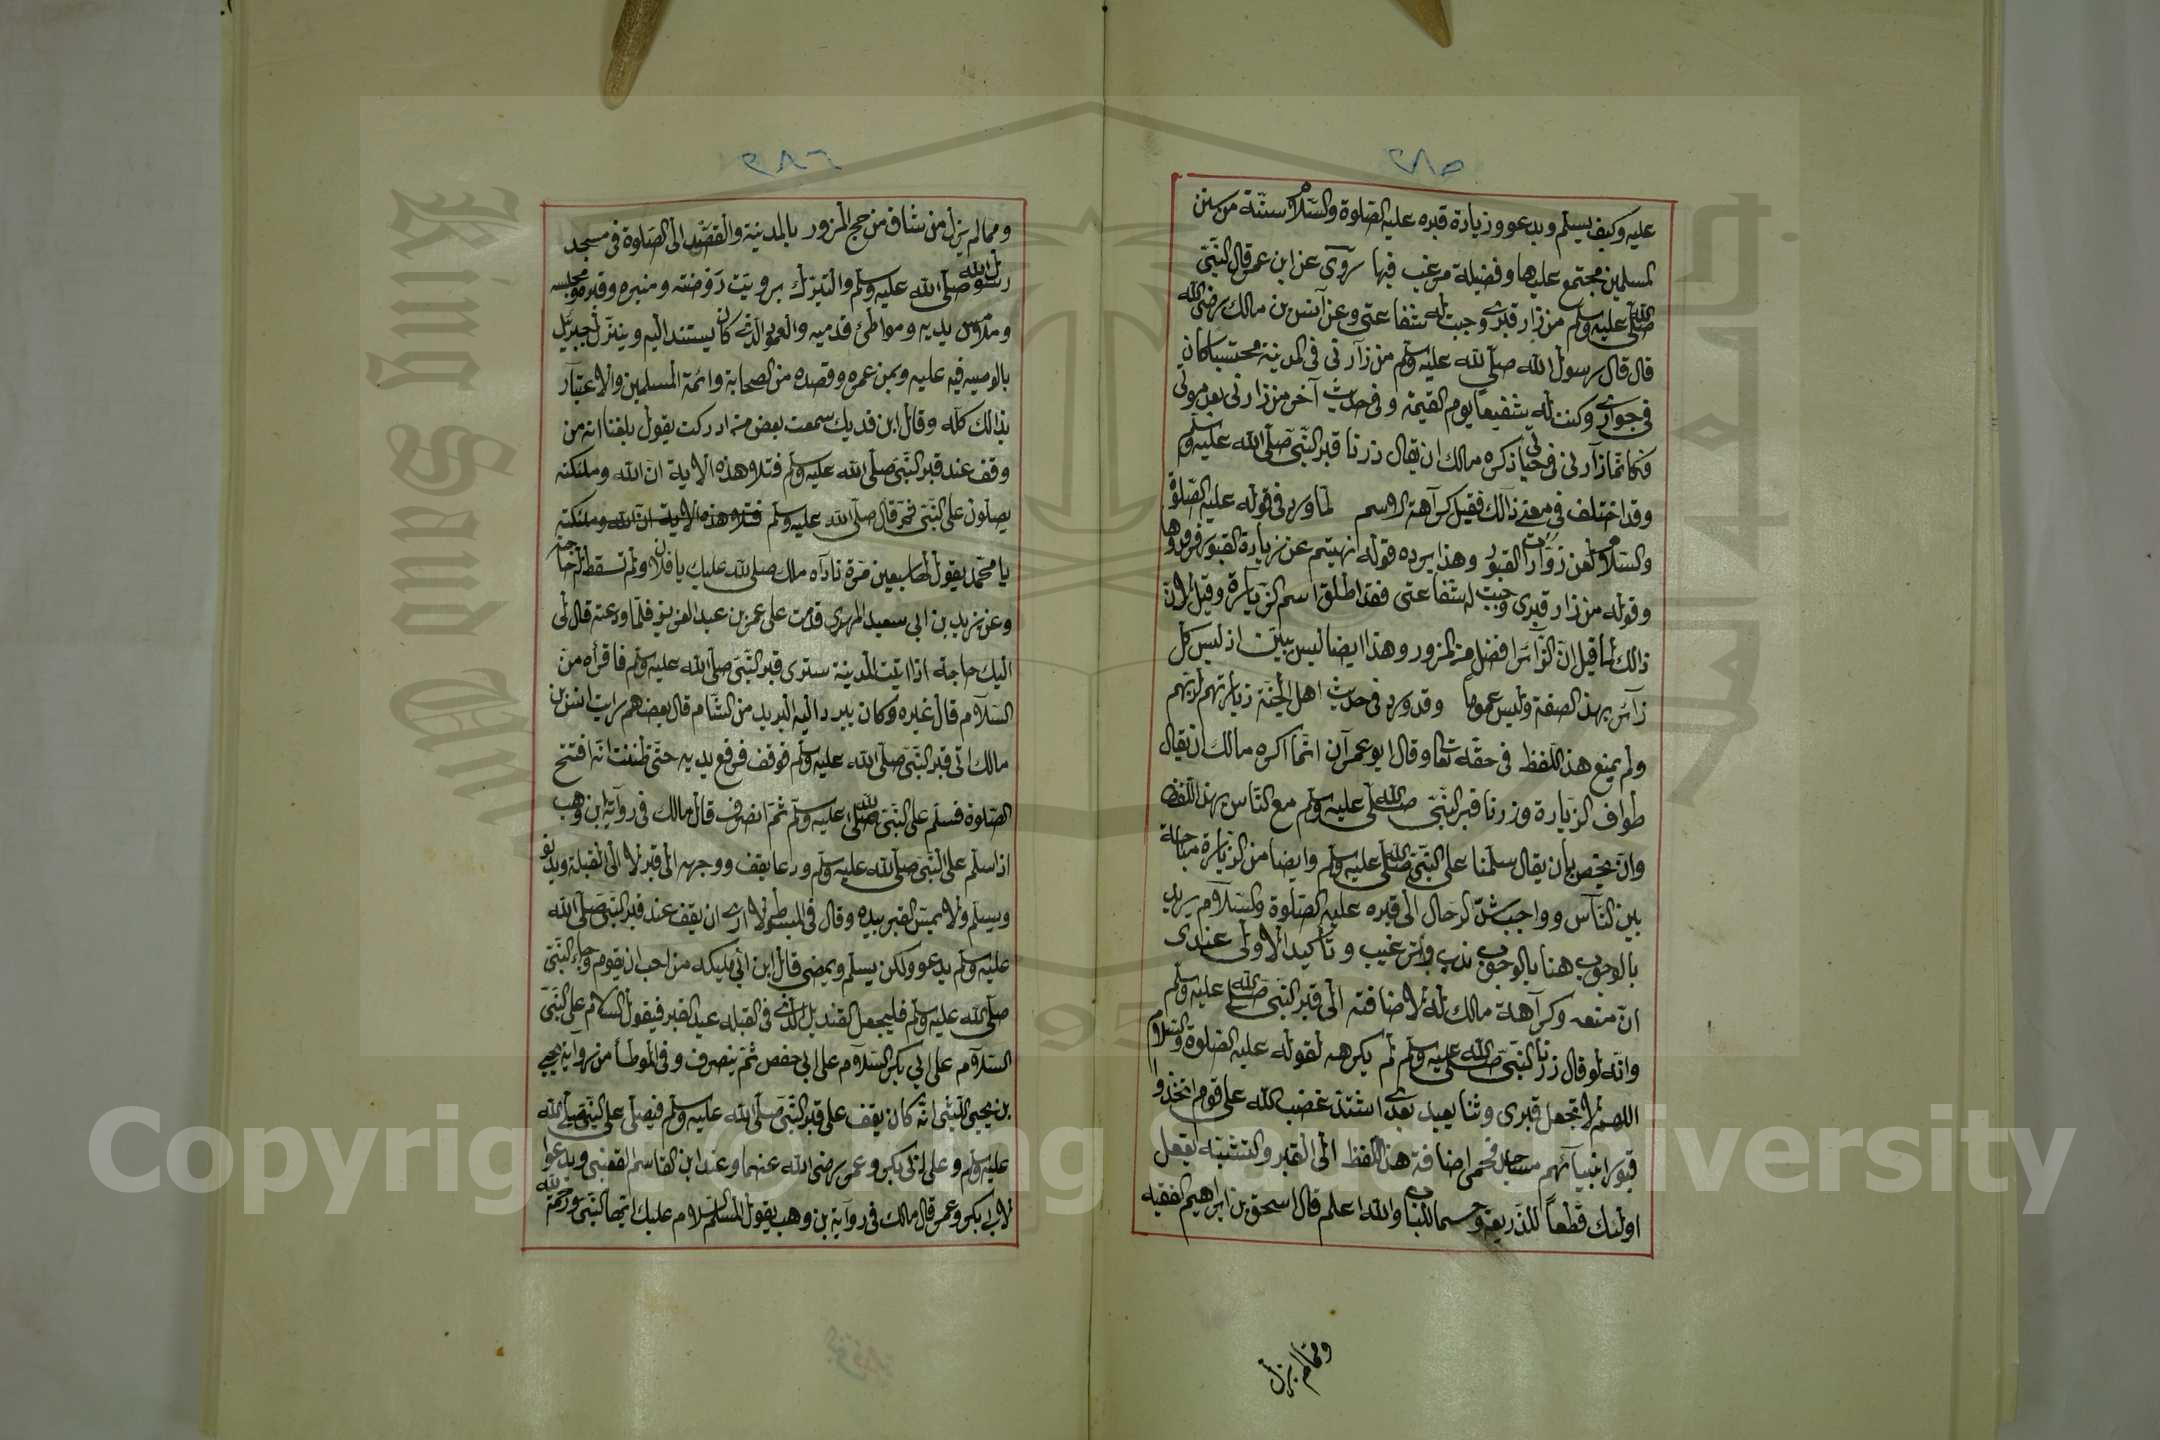 ٢٨٥
عليه وكيف يسلم ويدعو وزيارة قبره عليه الصلوة والسلام سنة من سنن
المسلمين مجتمع عليها وفضيلة مرغب فيها روى عن ابن عمر قال النبى
صلى الله عليه وسلم من زار قبرى وجبت له شفاعتى وعن أنس بن مالك رضى الله
قال قال رسول الله صلى الله عليه وسلم من زارنى فى المدينة محتسبا كان
فى جوارى وكنت له شفيعا يوم القيمة وفى حديث آخر من زارنى بعد موتى
فكانما زارنى فى حياتى ذكره مالك ان يقال زرنا قبر النبى صلى الله عليه وسلم
وقد اختلف فى معنى ذالك فقيل كراهة الاسم لما ورد فى قوله عليه الصلوة
والسلام لعن زوارات القبور وهذا يرده قوله نهيتم عن زيارة القبور فزوروها
وقوله من زار قبرى وجبت له شفاعتى فقد اطلق اسم الزيارة وقيل لان
ذالك لما قيل ان الزآئر افضل من المزور وهذا ايضا ليس ببين اذ ليس كل
زآئر بهذ الصفة وليس عموما وقد ورد فى حديث اهل الجنة زيارتهم لربهم
ولم يمنع هذ اللفظ فى حقه تعا وقال ابو عمرآن انما اكره مالك ان يقال
طواف الزيارة وزرنا قبر النبى صلى الله عليه وسلم مع الناس بهذ اللفظ
وان يختص بان يقال سلمنا على النبى صلى الله عليه وسلم وايضا من الزيارة مباحة
بين الناس وواجب شد الرحال الى قبره عليه الصلوة والسلام يريد
بالوجوب هنا بالوجوب ندب وترغيب وتأكيد الاولى عندى
ان منعه وكراهة مالك له لاضافته الى قبر النبى صلى الله عليه وسلم
وانه لو قال زرنا النبى صلى الله عليه وسلم لم يكرهه لقوله عليه الصلوة والسلام
اللهم لا تجعل قبرى وثنا يعبد بعدى اشتد غضب الله على قوم اتخذوا
قبور انبيآئهم مساجد فحمى اضافة هذ اللفظ الى القبر والتشبه بفعل
اولئك قطعا للذريعة وحسما للباب والله اعلم قال اسحق بن ابراهيم الفقيه
ومما لم يزل
٢٨٦
ومما لم يزل من شان من حج المزور بالمدينة والقصد الى الصلوة فى مسجد
رسول الله صلى الله عليه وسلم والتبرك برويت روضته ومنبره وقبره ومجلسه
وملامس يديه ومواطئ قدميه والعمود الذى كان يستند اليه وينزل جبريل
بالوحى فيه عليه وبمن عمره وقصده من الصحابة وائمة المسلمين والاعتبار
بذالك كله وقال ابن فديك سمعت بعض من ادركت يقول بلغنا انه من
وقف عند قبر النبى صلى الله عليه وسلم فتلا هذه الاية ان الله وملئكته
يصلون على النبى ثم قال صلى الله عليه وسلم فتلا هذه الاية ان الله وملئكته
يا محمد يقولها سبعين مرة ناداه ملك صلى الله عليك يا فلان ولم تسقط له حاجة
وعن يزيد بن ابى سعيد المهرى قدمت على عمر بن عبد العزيز فلما ودعته قال لى
اليك حاجة اذا اتيت المدينة سترى قبر النبى صلى الله عليه وسلم فاقرأه من
السلام قال غيره وكان يبرد اليه البريد من الشام قال بعضهم رايت انس بن
مالك اتى قبر النبى صلى الله عليه وسلم فوقف فرفع يديه حتى ظننت انه افتتح
الصلوة فسلم على النبى صلى الله عليه وسلم ثم انصرف قال مالك فى رواية ابن وهب
اذا سلم على النبى صلى الله عليه وسلم ودعا يقف ووجهه الى قبر لا الى القبلة ويدنو
ويسلم ولا يمس القبر بيده وقال فى المبسوط لا ارى ان يقف عند قبر النبى صلى الله
عليه وسلم يدعو ولكن يسلم ويمضى قال ابن ابى مليكه من احب ان يقوم وجاه النبى
صلى الله عليه وسلم فليجعل القنديل الذى فى القبله عند القبر فيقول السلام على النبى
السلام على ابى بكر السلام على ابى حفص ثم ينصرف وفى الموطأ من رواية يحيى
بن يحيى الليثى انه كان يقف على قبر النبى صلى الله عليه وسلم فيصلى على النبى صلى الله
عليه وسلم وعلى ابى بكر وعمر رضى الله عنهما وعند ابن القاسم القعنبى ويدعوا
لابى بكر وعمر قال مالك فى رواية بن وهب يقول المسلم السلام عليك ايها النبى ورحمة الله
Copyright © King Saud University